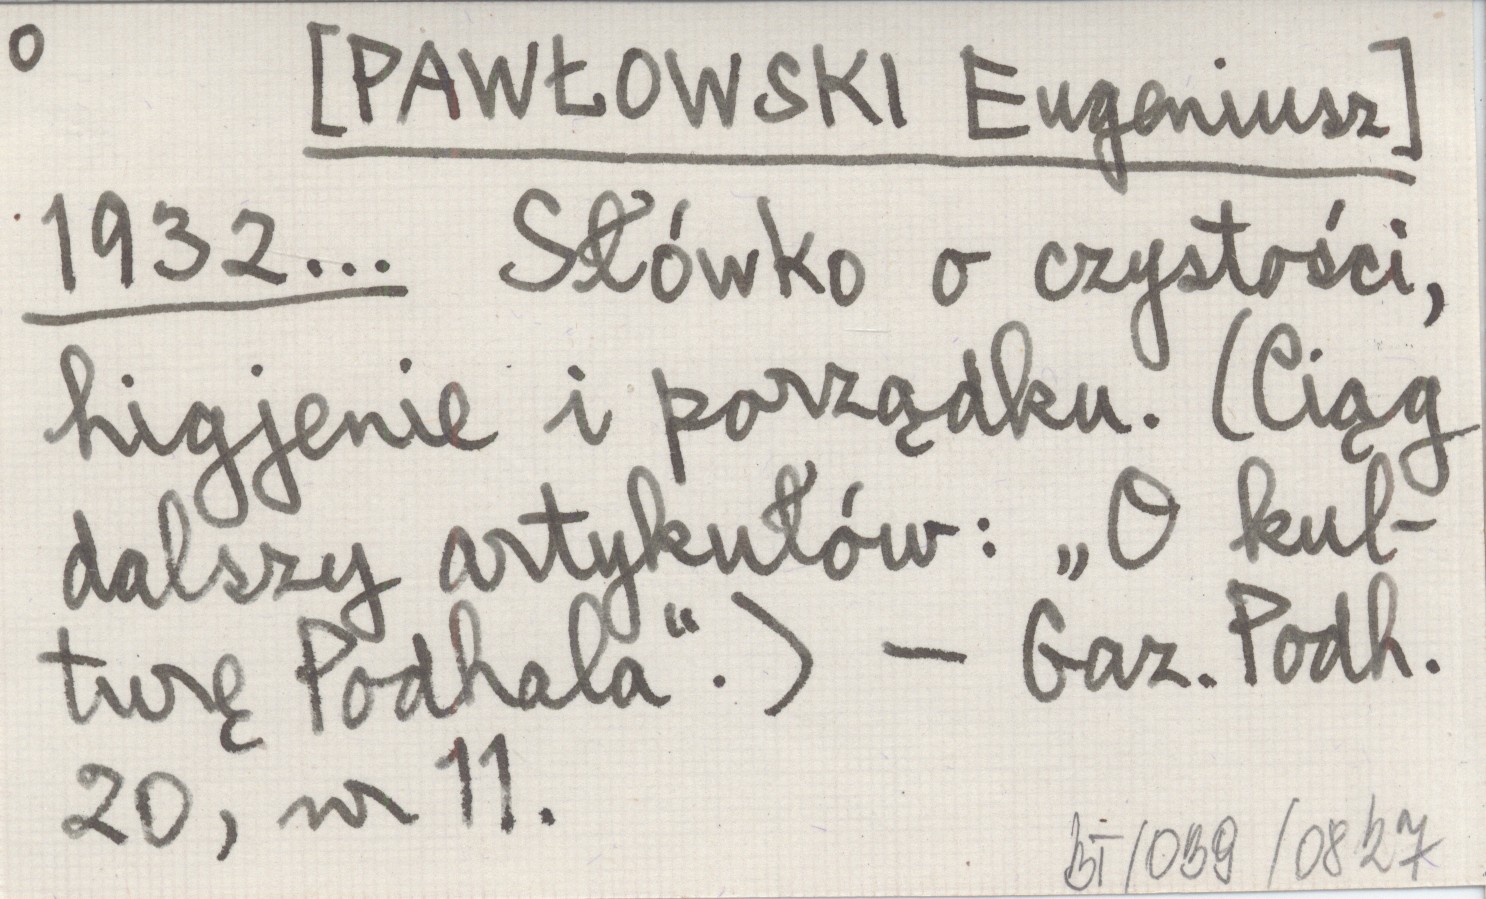 o [PAWŁOWSKI Eugeniusz]
1932... Słówko o czystości,
higjenie i porządku. (Ciąg
dalszy artykułów: „O kul-
turę Podhala“.) – Gaz. Podh.
20, nr 11.
BT/039/0827